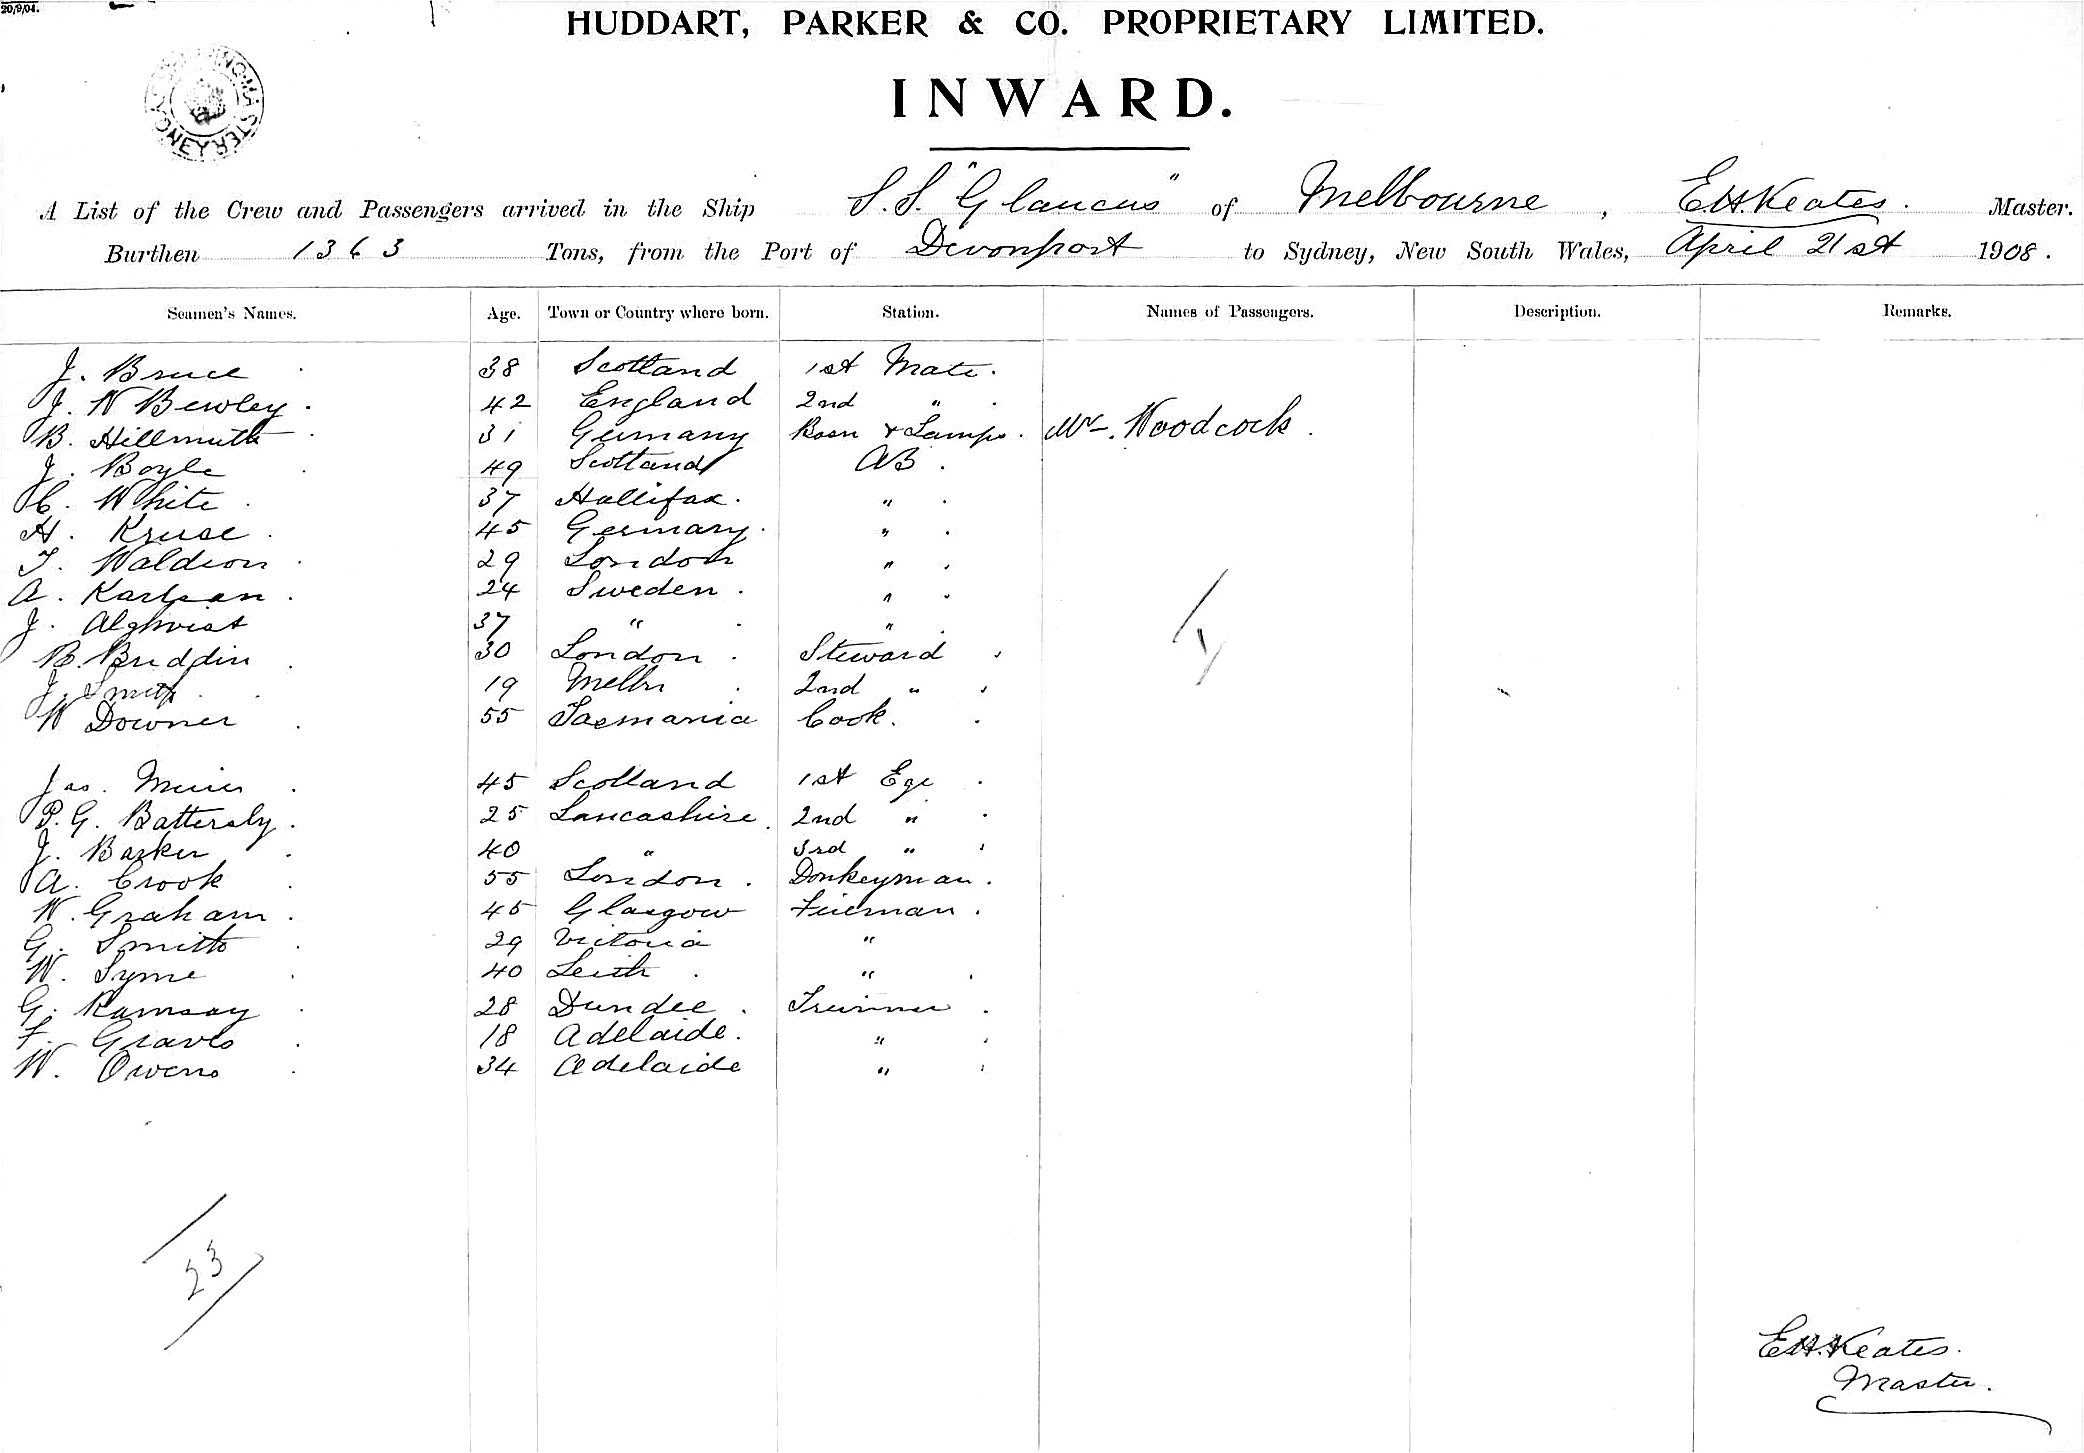 20/9/04.
HUDDART, PARKER & CO. PROPRIETARY LIMITED.
INWARD.
A List of the Crew and Passengers arrived in the Ship S.S. "Glaucus" of Melbourne, E.H. Keates. Master.
Burthen 1363 Tons, from the Port of Devonport to Sydney, New South Wales, April 21st 1908.
Seamen's Names. Age. Town or Country where born. Station. Names of Passengers. Description. Remarks.
J. Bruce 38 Scotland 1st Mate.
J. W Bewley 42 England 2nd "
B. Hillmuth 31 Germany Bosn & Lamps. Mr. Woodcock.
J. Boyle 49 Scotland AB.
C. White 37 Hallifax. "
H. Kruse 45 Germany. "
T. Waldron 29 London "
A. Karlson 24 Sweden. "
J. Alqhvist 37 " "
B. Briddin 30 London. Steward
J. Smith 19 Melbn 2nd "
W Downer 55 Tasmania Cook.
Jas. Muir 45 Scotland 1st Egr
P.G. Battersby. 25 Lancashire. 2nd "
J. Barker 40 " 3rd "
A. Crook 55 London. Donkeyman.
W. Graham. 45 Glasgow Fireman.
G. Smith 29 Victoria "
W. Syme 40 Leith. "
G. Ramsay 28 Dundee. Trimmer
F. Graves 18 Adelaide. "
W. Owens 34 Adelaide "
1
23
E.H. Keates.
Master.